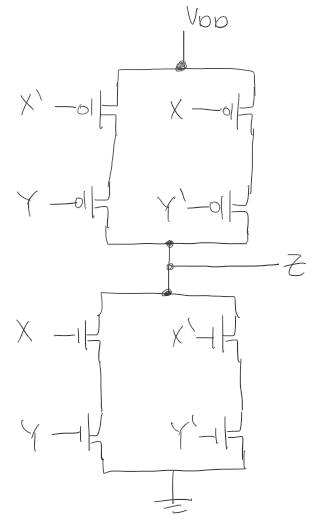 VDD
X' X
Y Y'
Z
X X'
Y Y'